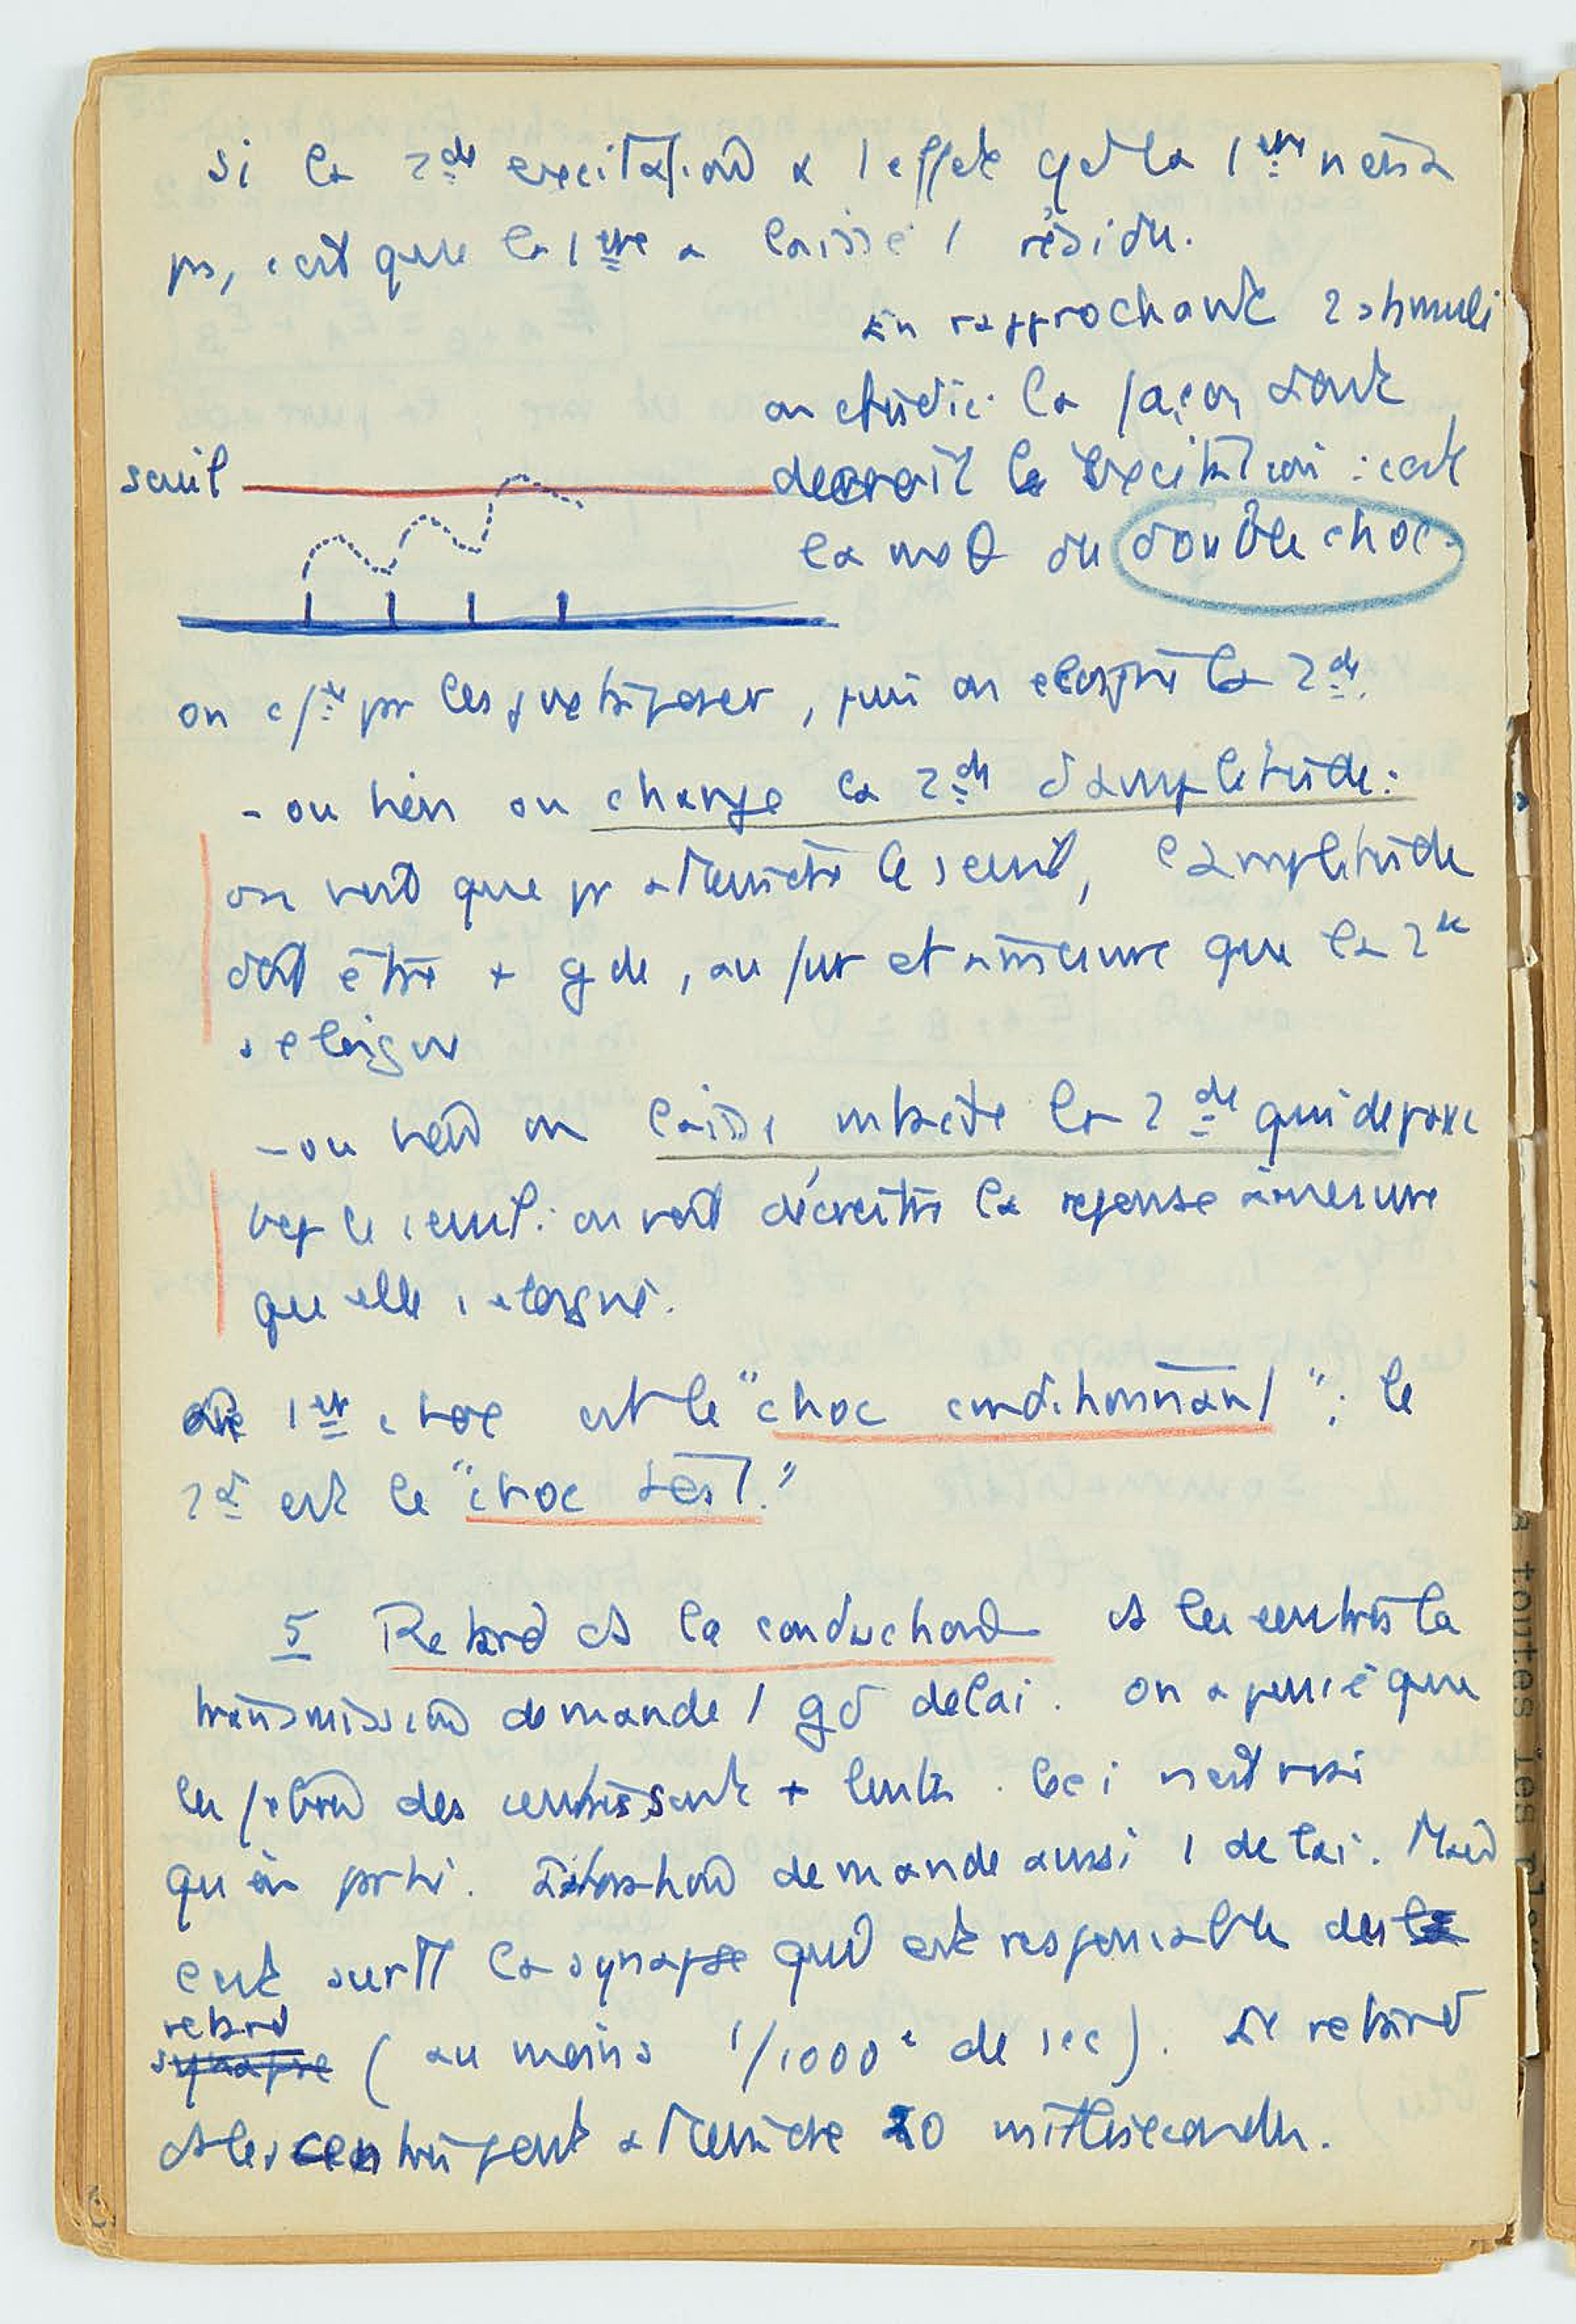 si la 2de excitation a 1 effet que la 1ère n'en a
ps, c'est que la 1ère a laissé 1 résidu.
En rapprochant 2 stimuli
on étudie la façon dont
seuil
décroît l'excitation : c'est
la du double choc.
on c/ce pr les juxtaposer, puis on éloigne la 2de.
- ou bien on change la 2de d'amplitude :
on voit que pr atteindre le seuil, l'amplitude
doit être + gde, au fur et à mesure que la 2de
s'éloigne
- ou bien on laisse intacte la 2de qui dépasse
le seuil : on voit décroître la réponse à mesure
qu'elle s'éloigne.
1er choc est le "choc conditionnant" ; le
2d est le "choc test."
5 Retard ds la conduction ds les centres la
transmission demande 1 gd délai. On a pensé que
les des centres sont + lents. Ceci n'est vrai
qu'en partie. demande aussi 1 délai. Mais
c'est surtt la synapse qui est responsable des la
retard
synapse (au moins 1/1000e de sec). Le retard
ds les centres peut atteindre 20 millisecondes.